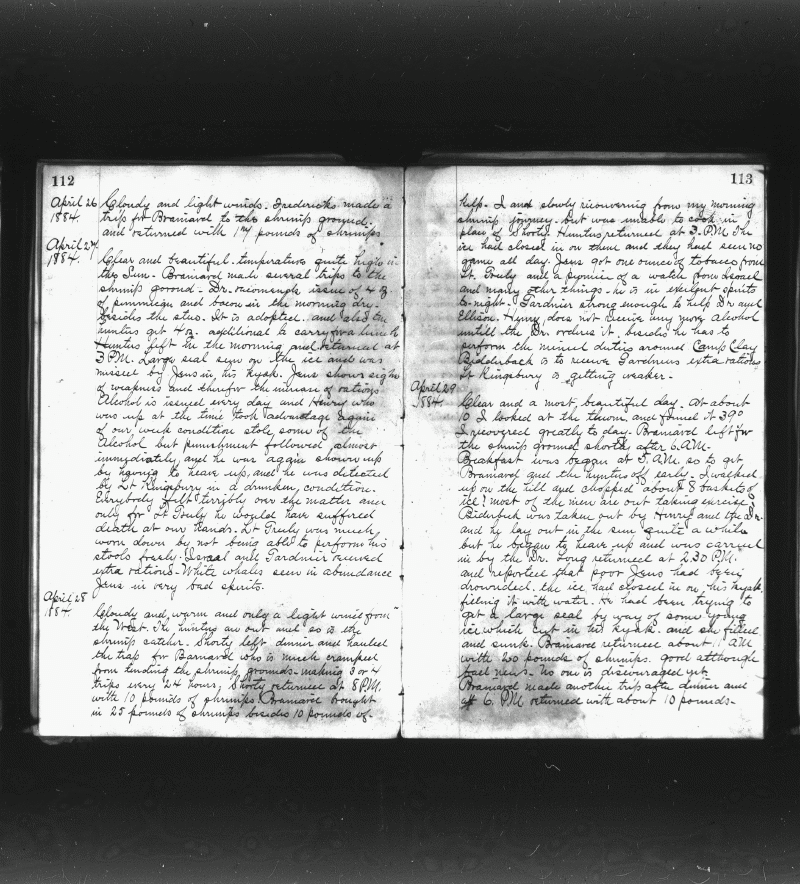 112
April 26 Cloudy and light winds. Fredericks made a
1884. trip for Brainard to the shrimp ground.
and returned with 17 pounds of shrimps
April 27
1884. Clear and beautiful. temperature quite high in
the Sun. Brainard made several trips to the
shrimp ground. Dr. issue of 4 oz
of and bacon in the morning dry.
besides the stew. It is adopted. and also the
hunters get 4 oz. additional to carry for a lunch
Hunters left in the morning and returned at
3 P.M. Large seal seen on the ice and was
missed by Jens in his kyak. Jens shows signs
of weakness and the increase of rations
Alcohol is issued every day and Henry who
was up at the time took advantage again
of our weak condition stole some of the
Alcohol but punishment followed almost
immediately, and he was again shown up
by having to heave up, and he was detected
by Lt Kingsbury in a drunken condition.
Everybody felt terribly over the matter and
only for Lt he would have suffered
death at our hands. Lt was much
worn down by not being able to perform his
stools freely. Israel and Gardner received
extra rations. White whales seen in abundance
Jens in very bad spirits.
April 28
1884. Cloudy and warm and only a light wind from
the West. The hunters are out and so is the
shrimp catcher. Shorty left dinner and hauled
the trap for Barnard who is much cramped
from tending the shrimp grounds. making 3 or 4
trips every 24 hours, Shorty returned at 8 P.M.
with 10 pounds of shrimps. Brainard brought
in 25 pounds of shrimps besides 10 pounds of
113
help. I and slowly recovering from my morning
shrimp journey. but was unable to cook in
place of Shorty. Hunters returned at 3. P.M. The
ice had closed in on them and they had seen no
game all day. Jens got one ounce of tobacco from
Lt. and a promise of a watch from Israel
and many other things. he is in excelent spirits
to-night. Gardner strong enough to help Dr and
Ellison. Henry does not receive any more Alcohol
untill the Dr. orders it. besides he has to
perform the duties around Camp Clay
Bidderback is to receive Gardners extra rations
Lt Kingsbury is getting weaker.
April 29
1884. Clear and a most beautiful day. At about
10 I looked at the therm, and found it 39°
I recovered greatly to day. Brainard left for
the shrimp ground shortly after 6. A.M.
Breakfast was began at 5 A.M. so to get
Brainard and the hunters off early. I walked
up on the hill and chopped about 8 baskets of
ice! most of the men are out taking exercise
Biderbick was taken out by Henry and the Dr.
and he lay out in the sun quite a while
but he began to heave up and was carried
in by the Dr. Long returned at 2.30 P.M.
and reported that poor Jens had being
drownded. the ice had closed in on his kyak,
filling it with water. He had been trying to
get a large seal by way of some young
ice which cut in his kyak. and she filled
and sunk. Brainard returned about 1 AM
with 200 pounds of shrimps. good although
bad news. no one is discouraged yet.
Brainard made another trip after dinner and
at 6. P.M returned with about 10 pounds.